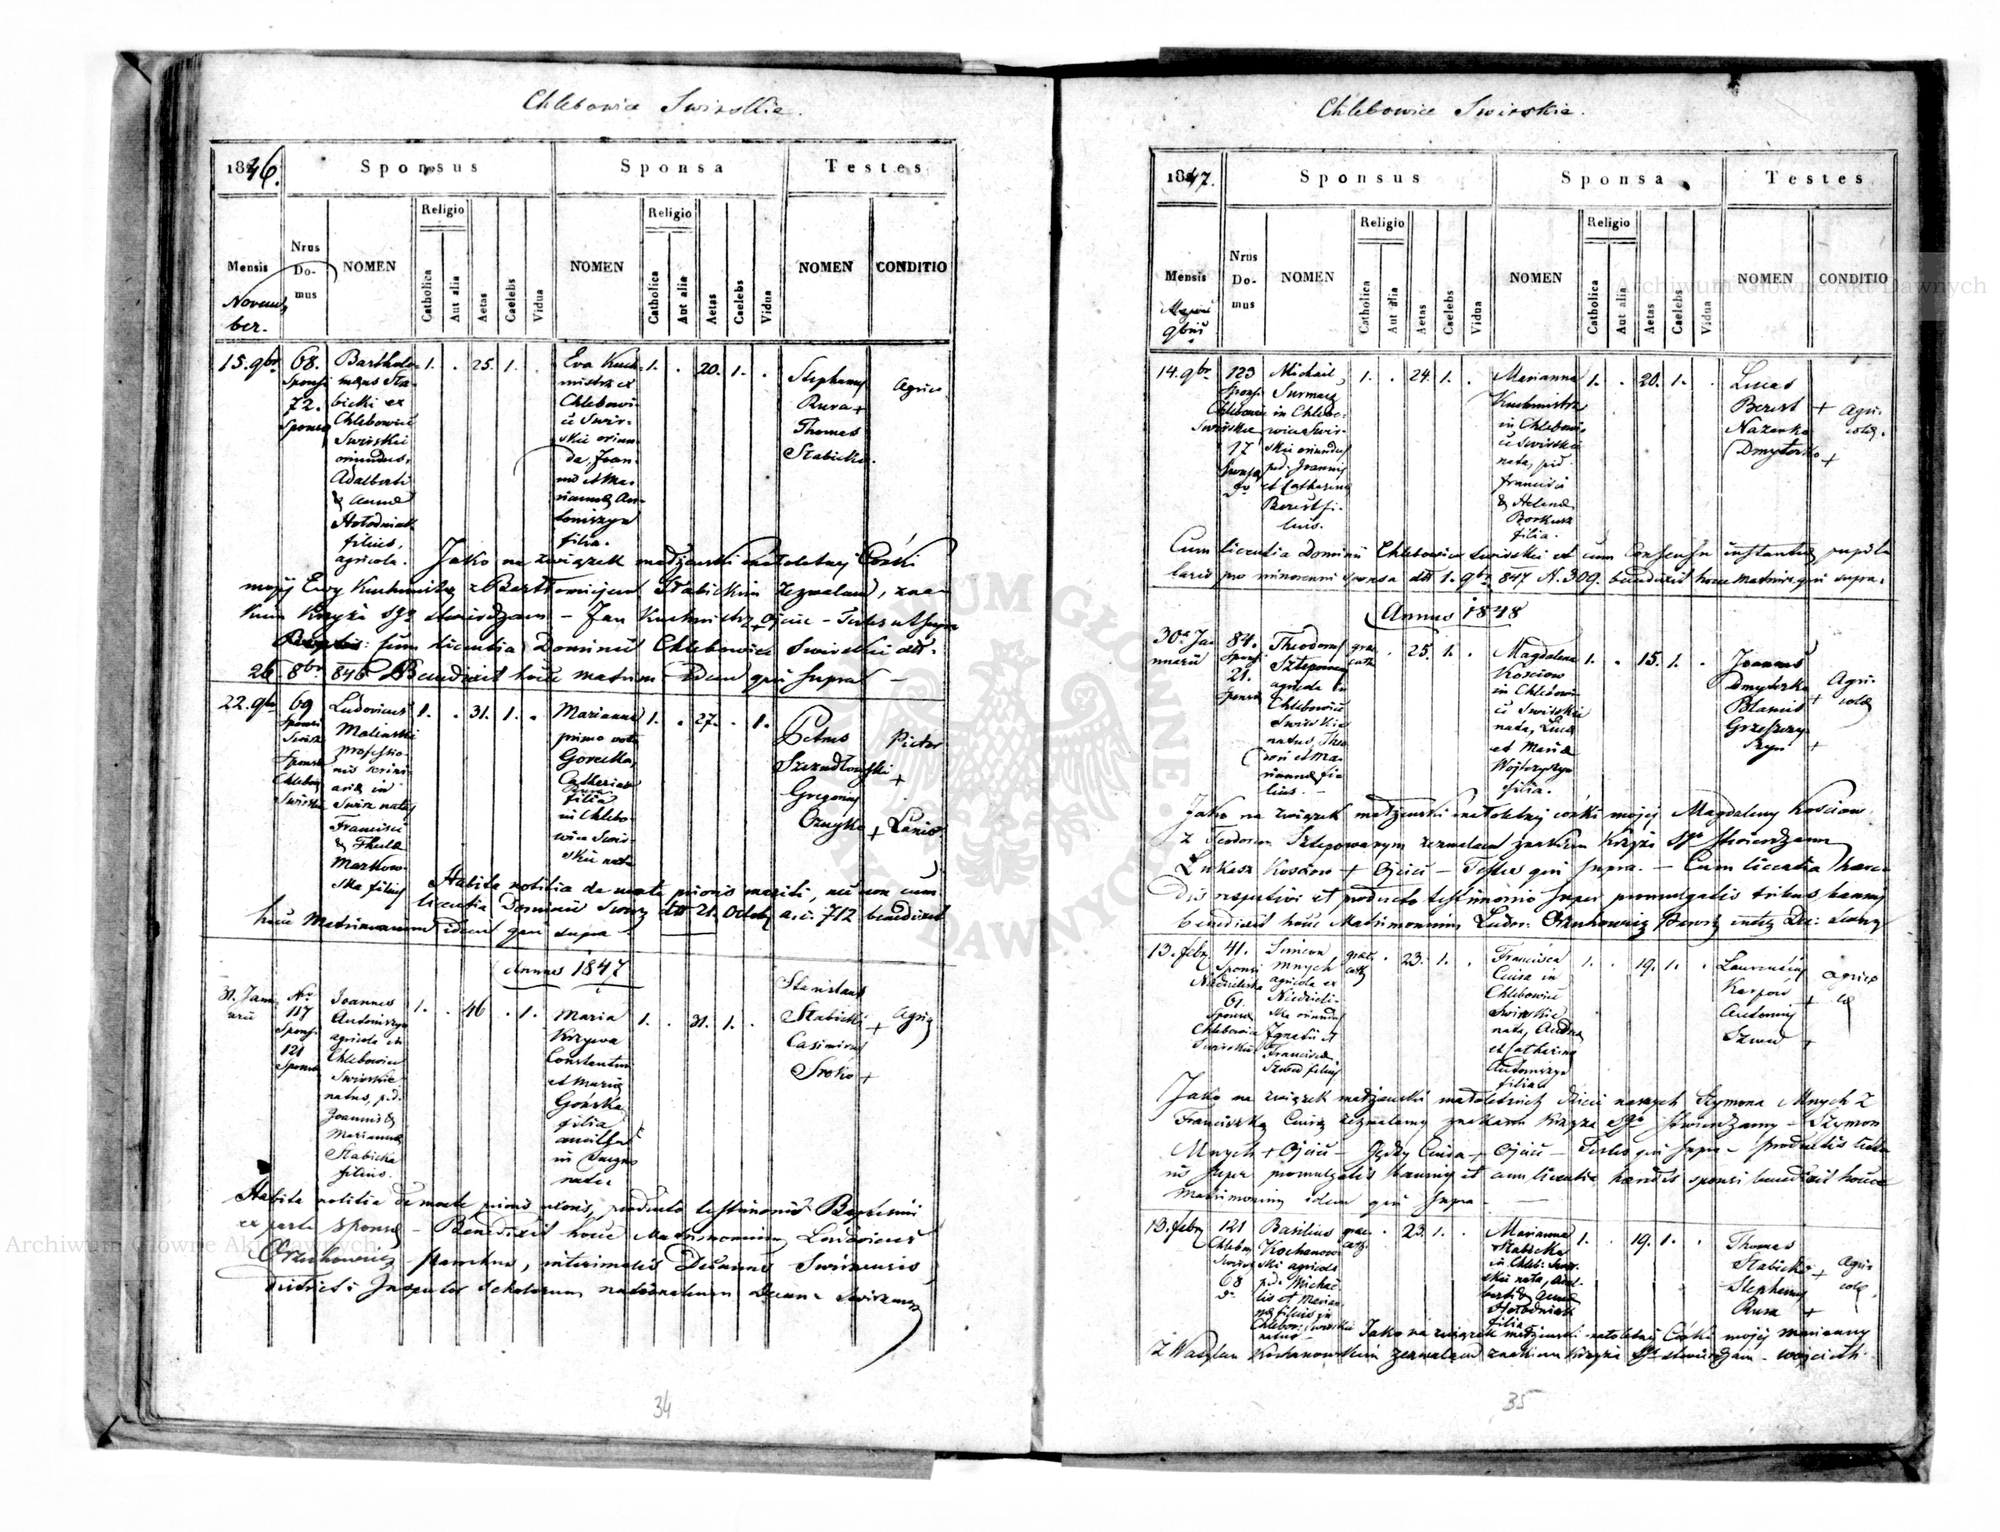 Chlebowice Swirskie.
1846.
Sponsus
Sponsa
Testes
Mensis
Novem-
ber.
Nrus
Do-
mus
NOMEN
Religio
Catholica
Aut alia
Aetas
Caelebs
Vidua
NOMEN
Religio
Catholica
Aut alia
Aetas
Caelebs
Vidua
NOMEN
CONDITIO
15. 9br
68.
Sponsi
72.
Sponsa
Bartholo-
maeus Sta-
bicki ex
Chlebowice
Swirskie
oriundus,
Adalberti
& Annae
Hołodniak
filius,
agricola.
1. . 25. 1. .
Eva Kuch-
mistrz ex
Chlebowi-
ce Swir-
skie oriun-
da, Joan-
nis et Ma-
riannae An-
toniszyn
filia.
1. . 20. 1. .
Stephanus
Rura +
Thomas
Stabicki
agric.
Jako na związek małżeński małoletniej Córki
mojej Ewy Kuchmistrz z Bartłomiejem Stabickim zezwalam, zna-
kiem Krzyża Sgo stwierdzam – Jan Kuchmistrz + Ojciec – Testes ut supra
Cum licentia Dominii Chlebowice Swirskie dtt
26. 8br 846 Benedixit hocce matrim. Idem qui supra
22. 9br
69
Sponsi
Swirz
Sponsa
Chlebow
Swirskie
Ludovicus
Malewski
professio-
nis scrini-
arii in
Swirz natus
Francisci
& Theclae
Markow-
ska filius
1. . 31. 1. .
Marianna
primo voto
Gorecka,
Catharinae
Rura
filia
in Chlebo-
wice Swir-
skie nata
1. . 27. . 1.
Petrus
Szczudłowski +
Gregorius
Czuyko +
Pictor
Lanio
Habita notitia de morte prioris mariti, nec non cum
licentia Dominii Swirz dtt 21. Octobr a. c. 712 benedixit
hocce Matrimonium idem qui supra
Annus 1847
31. Janu-
arii
Nr
117
Sponsi
121
Sponsa
Joannes
Antoniszyn
agricola ex
Chlebowice
Swirskie
natus, p.d.
Joannis &
Marianna
Stabicka
filius.
1. . 46 . 1.
Maria
Krzywa
Constantini
et Maria
Gońska
filia
ancilla
in
nata
1. . 31. 1. .
Stanislaus
Stabicki +
Casimirus
Sroko +
Agric
Habita notitia de morte prioris uxoris, producto testimonio Baptismi
ex parte Sponsae – Benedixit hocce Matrimonium Ludovicus
Orzechowicz Parochus, interimalis Decanus Swirzensis
districti Inspector Scholarum nationalium Decan. Swirzensis
34
Chlebowice Swirskie.
1847.
Sponsus
Sponsa
Testes
Mensis
9bris
Nrus
Do-
mus
NOMEN
Religio
Catholica
Aut alia
Aetas
Caelebs
Vidua
NOMEN
Religio
Catholica
Aut alia
Aetas
Caelebs
Vidua
NOMEN
CONDITIO
14. 9br
123
Sponsi
Chlebowice
Swirskie
17
Sponsa
do
Michail
Surmacz
in Chlebo-
wice Swir-
skie oriundus
p.d. Joannis
et Catharina
Berest fi-
lius.
1. . 24. 1. .
Marianna
Kuchmistrz
in Chlebowi-
ce Swirskie
nata, p.d.
Francisci
& Helenae
Borkusz
filia.
1. . 20. 1. .
Lucas
Berest +
Nazarko
Dmytorko +
Agri-
colae.
Cum licentia Dominii Chlebowice Swirskie et cum Consensu instantiae pupil-
laris pro minorenni sponsa dtt 1. 9br 847 N. 309. benedixit hocce Matrim. qui supra.
Annus 1848
30a Ja-
nuarii
84.
Sponsi
21.
Sponsa
Theodorus
Sztepowan
agricola in
Chlebowice
Swirskie
natus, Theo-
dori et Ma-
riannae fi-
lius.
graec
cath
. 25. 1. .
Magdalena
Kosciow
in Chlebowi-
ce Swirskie
nata, Lucae
et Maria
Wojtczyszyn
filia.
1. . 15. 1. .
Joannes
Dmytorko +
Blasius
Grzeszczy-
szyn +
Agri-
colae
Jako na związek małżeński małoletniej córki mojej Magdaleny Kosciow
z Teodorem Sztepowanym zezwalam znakiem Krzyża Sgo stwierdzam
Łukasz Kosciow + Ojciec – Testes qui supra. – Cum licentia Haere-
dis respectivi et producto testimonio super promulgatis tribus bannis
benedixit hocce Matrimonium Ludov. Orzechowicz
13. febr
41.
Sponsi
Niedzieliska
61.
Sponsa
Chlebowice
Swirskie
Simeon
Mnych
agricola ex
Niedzieli-
ska oriundus
Ignatii et
Francisca
Szwed filius
graec
cath
. 23. 1. .
Francisca
Ciura in
Chlebowice
Swirskie
nata, Andrea
et Catharina
Antoniszyn
filia
1. . 19. 1. .
Laurentius
Karpow +
Antonius
Szwed +
agrico
lae
Jako na związek małżeński małoletnich dzieci naszych Szymona Mnych z
Franciszką Ciura zezwalamy znakiem Krzyża Sgo stwierdzamy – Szymon
Mnych + Ojciec – Jędrzy Ciura + Ojciec – Testes qui supra – productis testimo-
niis super promulgatis bannis et cum licentia haeredis sponsi benedixit hocce
Matrimonium idem qui supra
13. febr
121
Chlebow
Swirskie
68
do
Basilius
Kochanow-
ski agricola
p.d. Michae-
lis et Marian-
nae filius in
Chlebow: Swirskie
natus
graec
cath.
. 23. 1. .
Marianna
Stabicka
in Chleb: Swir-
skie nata, Adal-
berti & Annae
Hołodniak
filia
1. . 19. 1. .
Thomas
Stabicki +
Stephanus
Rura +
Agri-
colae
Jako na związek małżeński małoletniej Córki mojej Marianny
z Wasylem Kochanowskim zezwalam znakiem Krzyża Sgo stwierdzam – Wojciech
35
Archiwum Główne Akt Dawnych
ARCHIWUM GŁÓWNE AKT DAWNYCH
Archiwum Główne Akt Dawnych